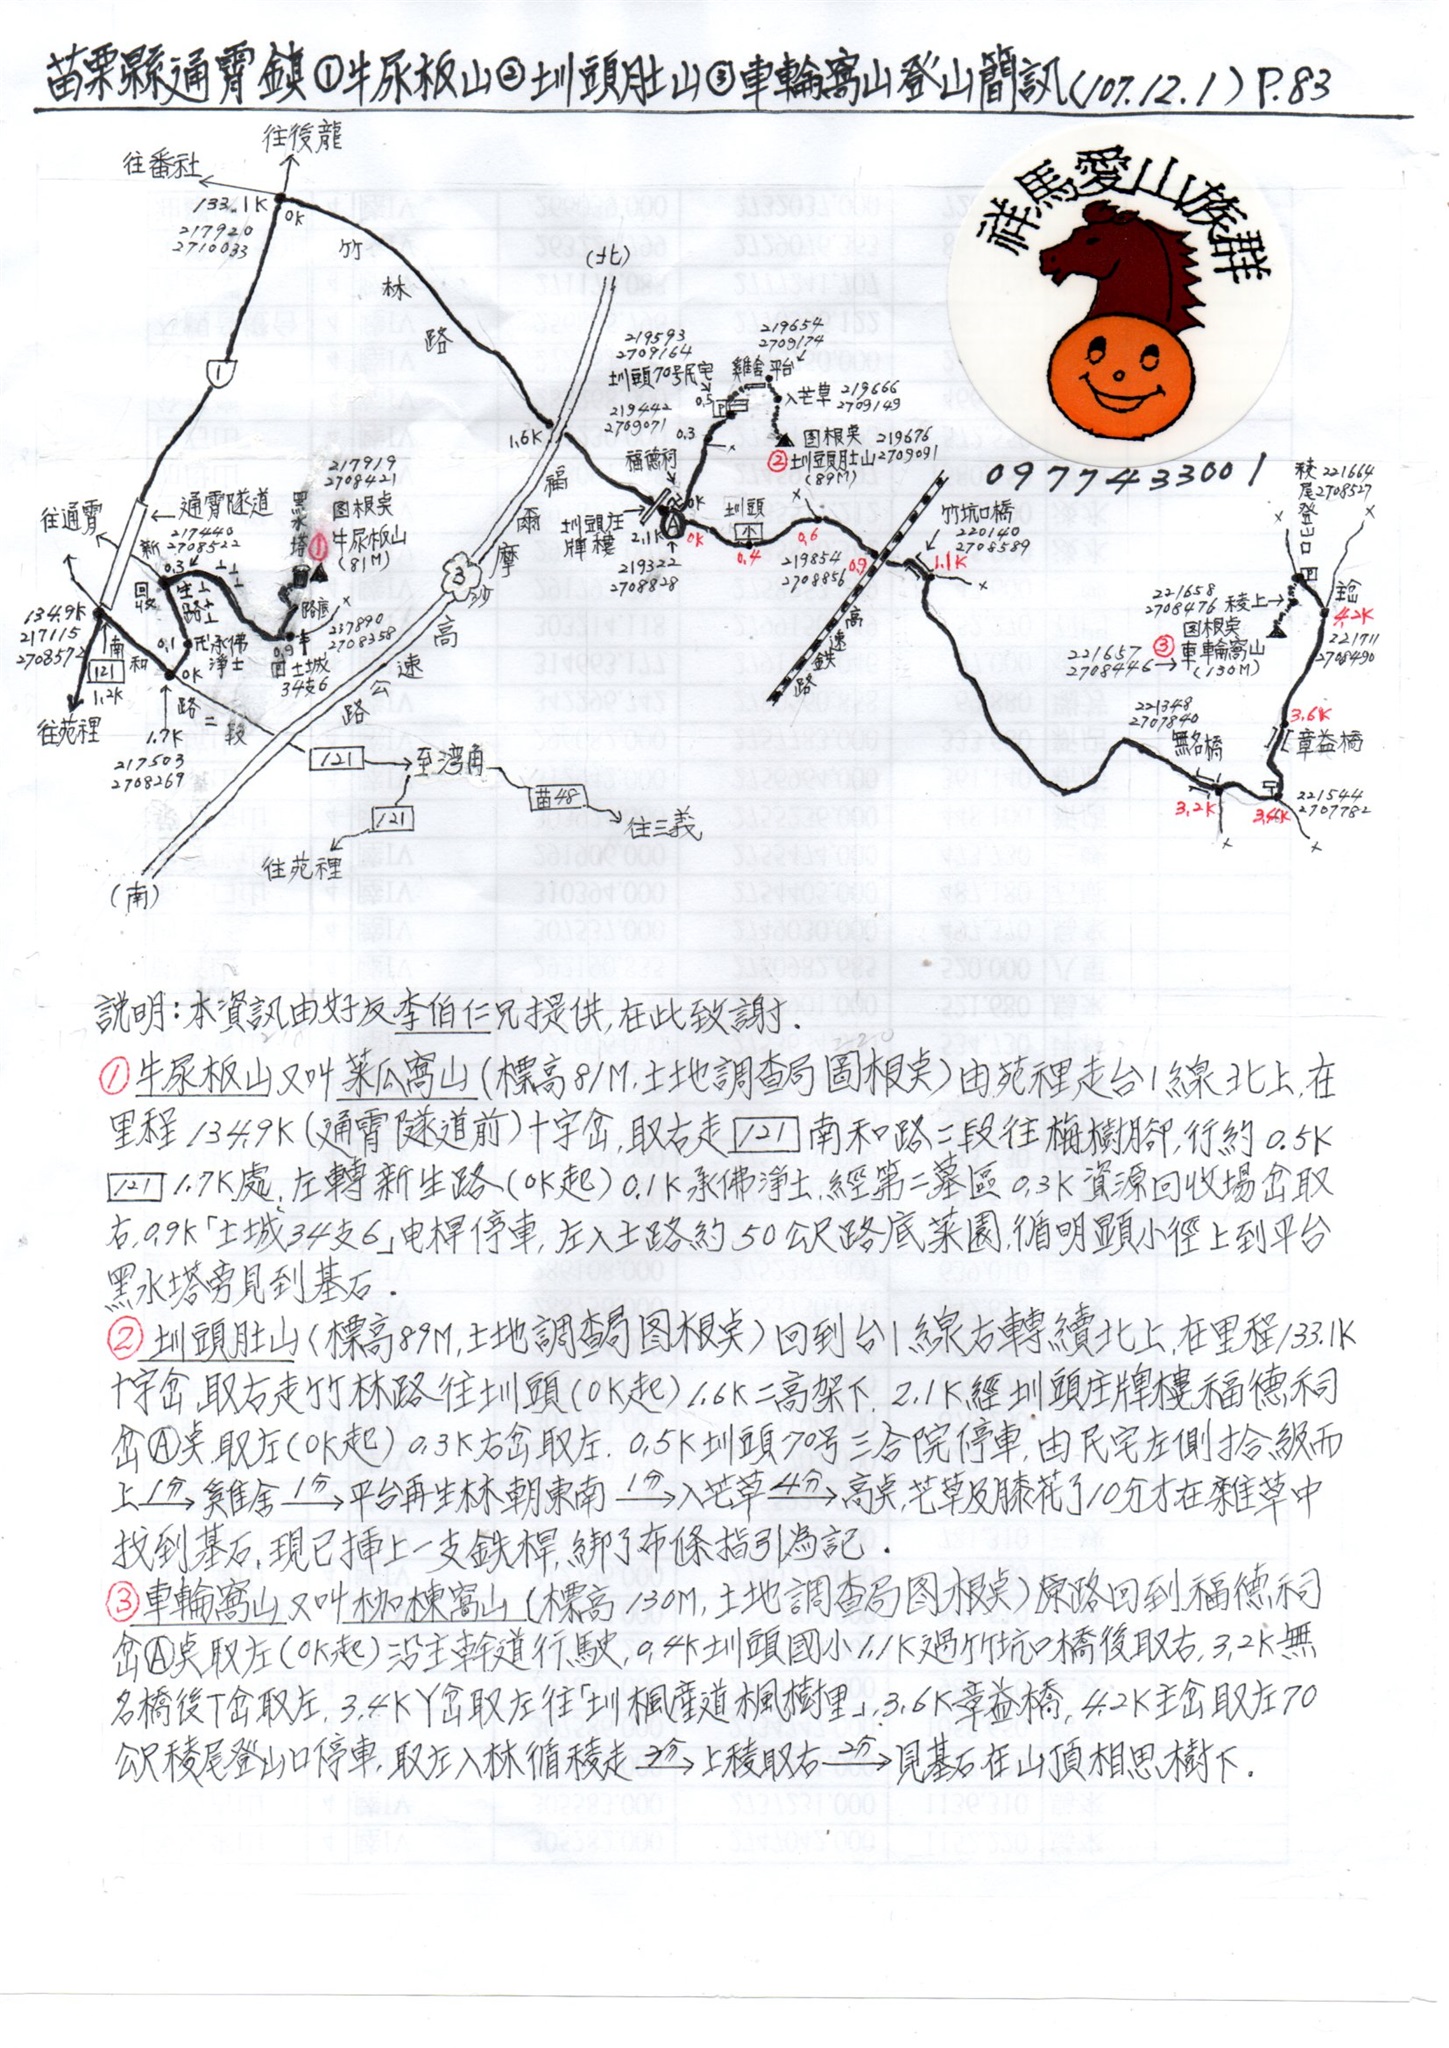 苗栗縣通霄鎮①牛尿板山②圳頭肚山③車輪窩山登山簡訊(107.12.1) P.83
祥馬愛山族群
0977433001
往後龍
往番社
133.1K
0K
217920
2710033
竹林路
(北)
1
1.6K
219593
2709164
圳頭70号民宅
219654
2709174
雞舍
平台
入芒草
219666
2709149
0.5
P
0.3
219442
2709071
図根奌
219676
②圳頭肚山
2709091
(89M)
福德祠
0K
圳頭庄
牌樓
2.1K
A
219322
2708828
0K
圳頭
小
0.4
0.6
219854
2708856
0.9
高速鉄路
竹坑口橋
220140
2708589
1.1K
稜尾登山口
221664
2708527
P
主岔
4.2K
221711
2708490
221658
2708476
稜上
図根奌
③車輪窩山
(130M)
221657
2708446
3.6K
章益橋
221348
2707840
無名橋
3.2K
3.4K
221544
2707782
往通霄
通霄隧道
217440
2708522
新生路
回收
0.3
土
0.1
承佛淨土
0K
黑水塔
217919
2708421
図根奌
①牛尿板山
(81M)
路底
217890
2708358
0.9
土城
34支6
134.9K
217115
2708572
121
1.2K
南和路二段
往苑裡
1.7K
217503
2708269
3
福爾摩沙高速公路
121
至湾角
苗48
往三義
121
往苑裡
(南)
説明:本資訊由好友李伯仁兄提供,在此致謝.
①牛尿板山又叫菜瓜窩山(標高81M,土地調查局圖根奌)由苑裡走台1線北上,在
里程134.9K(通霄隧道前)十字岔,取右走121南和路二段往梅樹腳,行約0.5K
121 1.7K處,左轉新生路(0K起)0.1K承佛淨土,經第二墓區0.3K資源回收場岔取
右,0.9K「土城34支6」电桿停車,左入土路約50公尺路底菜園,循明顯小徑上到平台
黑水塔旁見到基石.
②圳頭肚山(標高89M,土地調查局図根奌)回到台1線右轉續北上,在里程133.1K
十字岔,取右走竹林路往圳頭(0K起)1.6K二高架下,2.1K經圳頭庄牌樓福德祠
岔Ⓐ奌取左(0K起)0.3K右岔取左,0.5K圳頭70号三合院停車,由民宅左側拾級而
上1分→雞舍1分→平台再生林朝東南1分→入芒草4分→高奌,芒草及膝花了10分才在雜草中
找到基石,現已揷上一支鉄桿,綁了布條指引為記.
③車輪窩山又叫枷棟窩山(標高130M,土地調查局図根奌)原路回到福德祠
岔Ⓐ奌取左(0K起)沿主幹道行駛,0.4K圳頭國小1.1K過竹坑口橋後取右,3.2K無
名橋後T岔取左,3.4K Y岔取左往「圳楓產道楓樹里」,3.6K章益橋,4.2K主岔取左70
公尺稜尾登山口停車,取左入林循稜走2分→上稜取右2分→見基石在山頂相思樹下.